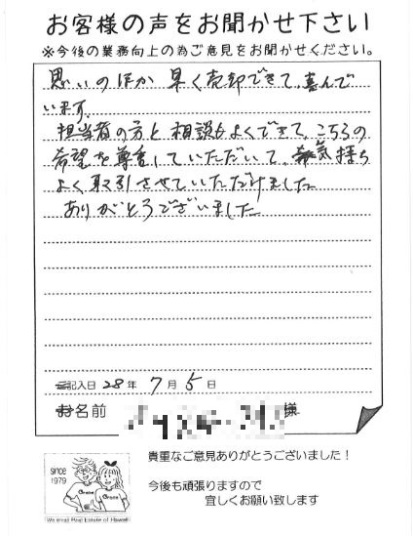 お客様の声をお聞かせ下さい
※今後の業務向上の為ご意見をお聞かせください。
思いのほか 早く売却できて、喜んで
います。
担当者の方と 相談もよくできて、こちらの
希望を尊重していただいて、気持ち
よく取引させていただけました
ありがとうございました
記入日 28年 7月 5日
お名前 様
since
1979
貴重なご意見ありがとうございました！
今後も頑張りますので
宜しくお願い致します